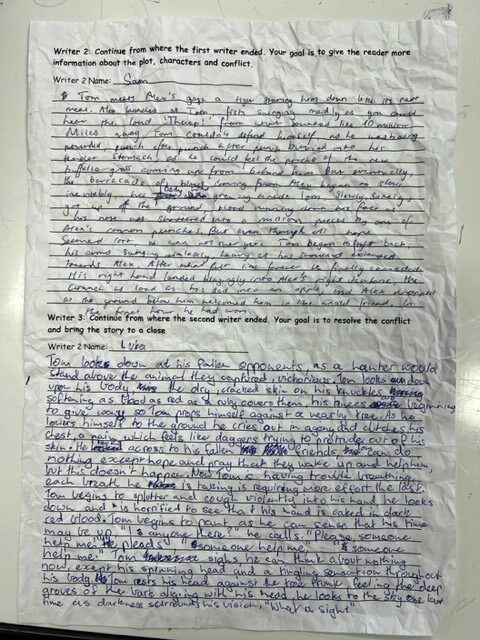 Writer 2: Continue from where the first writer ended. Your goal is to give the reader more
information about the plot, characters and conflict.
Writer 2 Name: Sam
Tom meets Alex's gaze a tiger staring him down like its next
meal. Alex launched at Tom fists swinging madly as you could
hear the loud from what sounded like 10 million
Miles away Tom couldn't defend himself and he was having
punch after punch after punch buried into his
tender stomach as he could feel the of the new
buffalo grass coming up from behind him But eventually,
the barracade of coming from Alex began to slow,
inevitably his body growing Tom slowly, Surely,
got up off the ground blood running down his face as
his nose was shattered into a million pieces by one of
Alex's common punches. But even though all hope
Seemed lost it was not over yet. Tom began to fight back,
his arms swinging heavy as his extended
towards Alex. After what felt like forever he finally connected
His right hand landed into Alex's
crunch as loud as his and Alex dropped
as the ground below him welcomed him in like an old friend,
how he had won.
Writer 3: Continue from where the second writer ended. Your goal is to resolve the conflict
and bring the story to a close
Writer 2 Name: Luka
Tom looks down at his fallen opponents, as a hunter would
stand above the animal they captured, victorious. Tom looks down
upon his body the dry, cracked skin on his knuckles
softening as blood as red as a ruby covers them, his knees beginning
to give way so Tom props himself against a nearby tree. As he
lowers himself to the ground he cries out in agony and clutches his
chest, a pain which feels like daggers trying to protrude out of his
skin. He looks across to his fallen friends, he can do
nothing except hope and pray that they wake up and help him,
but this doesn't happen. Now Tom is having trouble breathing,
each breath he is taking is requiring more effort the last.
Tom begins to splutter and cough violently into his hand he looks
down and is horrified to see that his hand is caked in dark
red blood. Tom begins to panic as he can sense that his time
may be up "Is anyone there?" he calls. "Please, someone
help me" He pleads "someone help me, someone
help me" Tom sighs he can think about nothing
now, except his spinning head and a tingling sensation throughout
his body. Tom rests his head against the tree trunk, feeling the deep
groves of the bark aligning with his head, he looks to the sky one last
time as darkness surrounds his vision, "What a sight"